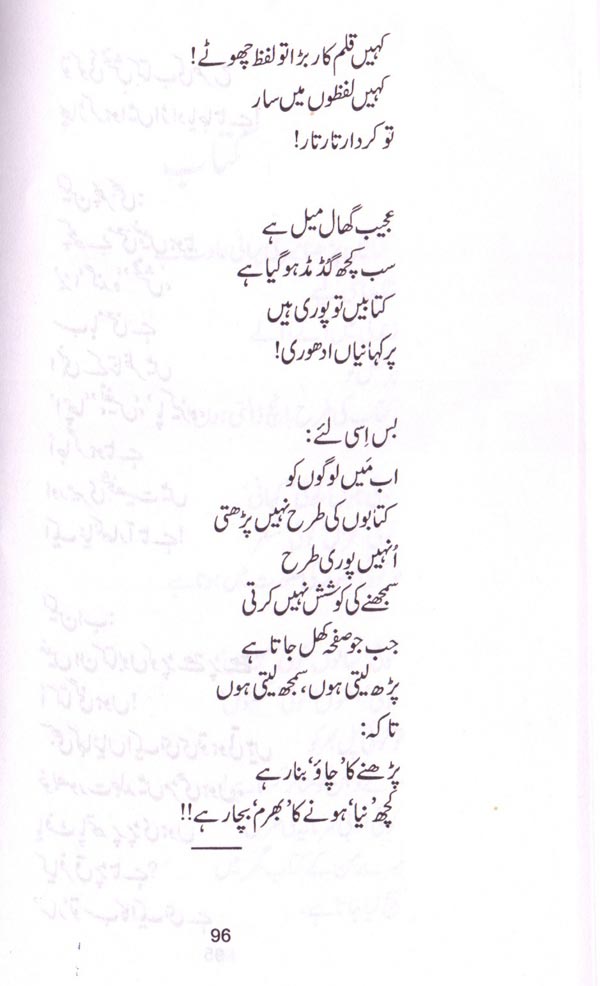 کہیں قلم کار بڑا تو لفظ چھوٹے!
کہیں لفظوں میں سار
تو کردار تار تار!
عجیب گھال میل ہے
سب کچھ گڈمڈ ہوگیا ہے
کتابیں تو پوری ہیں
پر کہانیاں ادھوری!
بس اِسی لئے:
اب مَیں لوگوں کو
کتابوں کی طرح نہیں پڑھتی
اُنہیں پوری طرح
سمجھنے کی کوشش نہیں کرتی
جب جو صفحہ کھل جاتا ہے
پڑھ لیتی ہوں، سمجھ لیتی ہوں
تاکہ:
پڑھنے کا ’چاؤ‘ بنا رہے
کچھ ’نیا‘ ہونے کا ’بھرم‘ بچا رہے!!
96